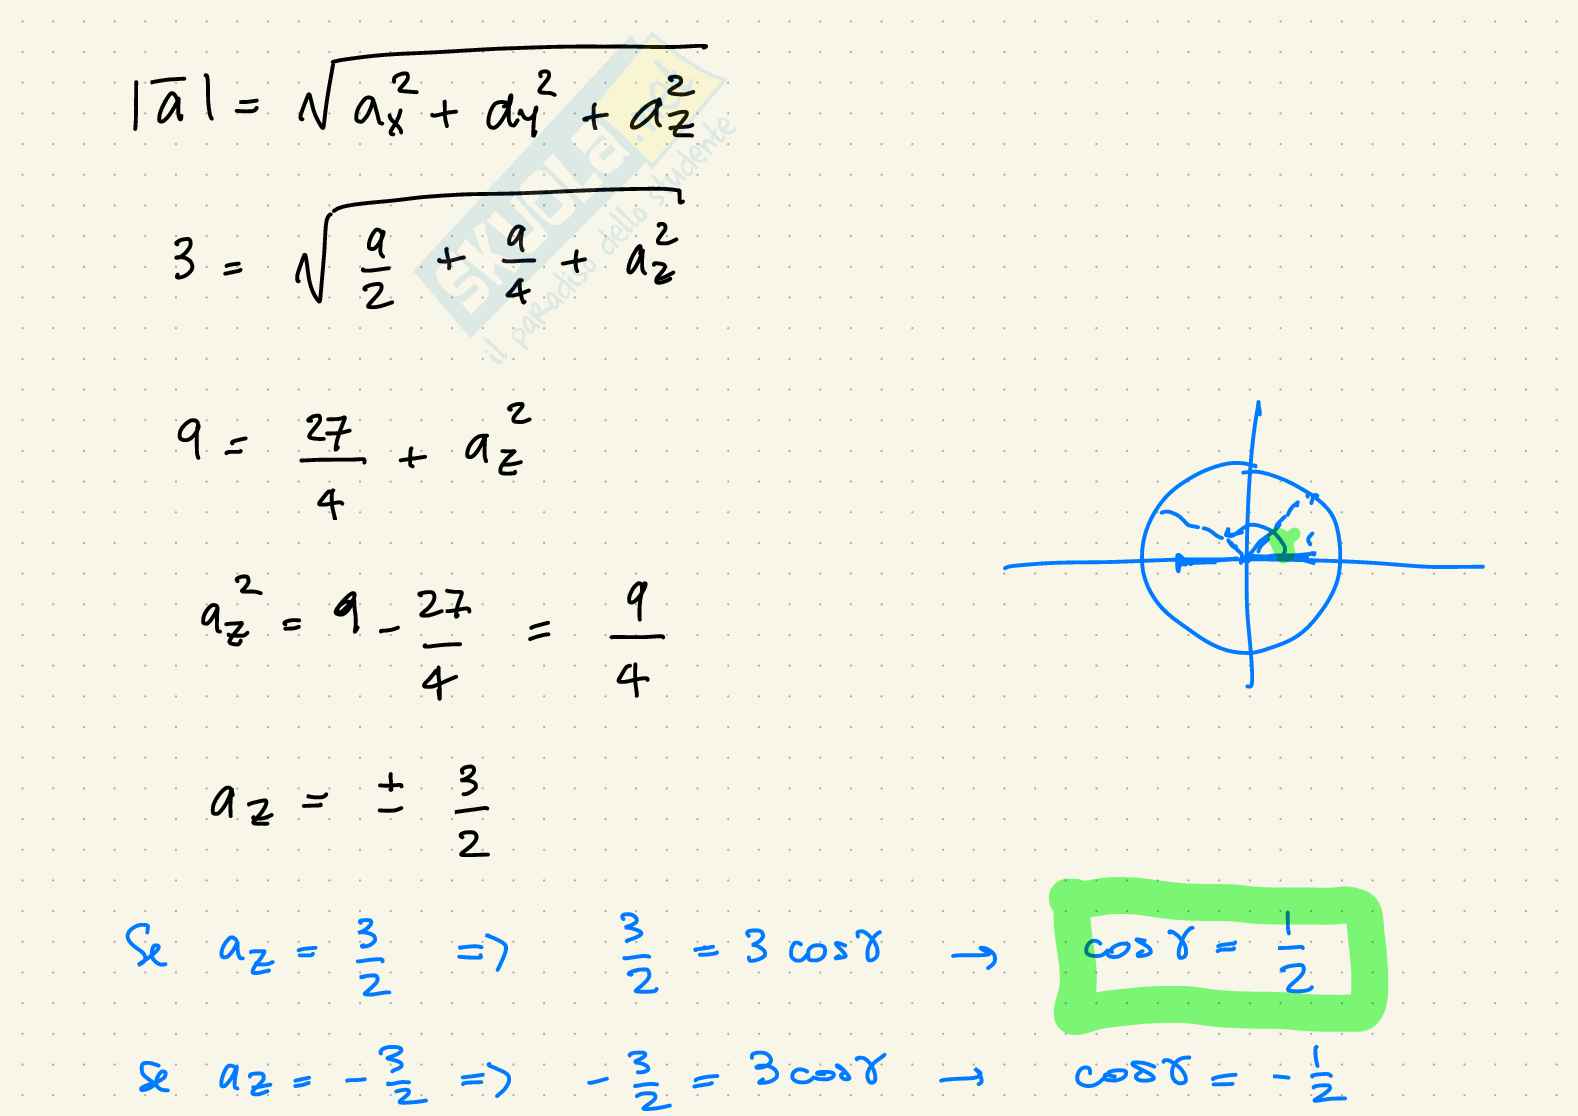 |a̅| = √(aₓ² + a_y² + a_z²)
3 = √(9/2 + 9/4 + a_z²)
9 = 27/4 + a_z²
a_z² = 9 - 27/4 = 9/4
a_z = ± 3/2
Se a_z = 3/2 => 3/2 = 3 cos γ → cos γ = 1/2
Se a_z = - 3/2 => - 3/2 = 3 cos γ → cos γ = - 1/2
SKUOLA.net
il paradiso dello studente